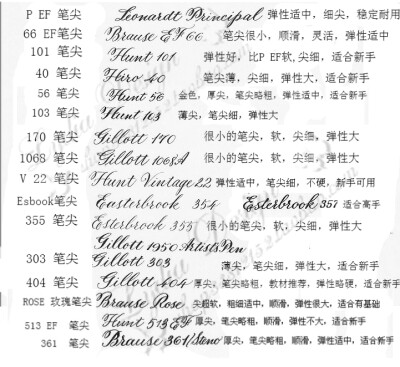 P EF 笔尖 Leonardt Principal 弹性适中，细尖，稳定耐用
66 EF笔尖 Brause EF 66 笔尖很小，顺滑，灵活，弹性适中
101 笔尖 Hunt 101 弹性好，比P EF软,尖细，适合新手
40 笔尖 Hiro 40 笔尖薄，尖细，弹性大，适合新手
56 笔尖 Hunt 56 金色，厚尖，笔尖略粗，弹性适中，适合新手
103 笔尖 Hunt 103 薄尖，笔尖细，弹性大
170 笔尖 Gillott 170 很小的笔尖，软，尖细，弹性大
1068 笔尖 Gillott 1068A 很小的笔尖，软，尖细，弹性大
V 22 笔尖 Hunt Vintage 22 弹性适中，笔尖细，不硬，新手可用
Esbook笔尖 Easterbrook 354 Esterbrook 357 适合高手
355 笔尖 Esterbrook 355 很小的笔尖，软，尖细，弹性大
Gillott 1950 Artists Pen
303 笔尖 Gillott 303 薄尖，笔尖细，弹性大，适合新手
404 笔尖 Gillott 404 厚尖，笔尖略粗，教材推荐，弹性略硬，适合新手
ROSE 玫瑰笔尖 Brause Rose 尖超软，粗细适中，顺滑，弹性很大，适合有基础
513 EF 笔尖 Hunt 513 EF 厚尖，笔尖略粗，顺滑，弹性不大，适合新手
361 笔尖 Brause 361/Steno 厚尖，笔尖略粗，顺滑，弹性适中，适合新手